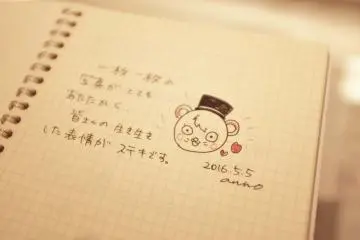 一枚一枚の
写真がとても
あたたかく、
皆さんの生き生き
した表情がステキです。
2016.5.5
anno